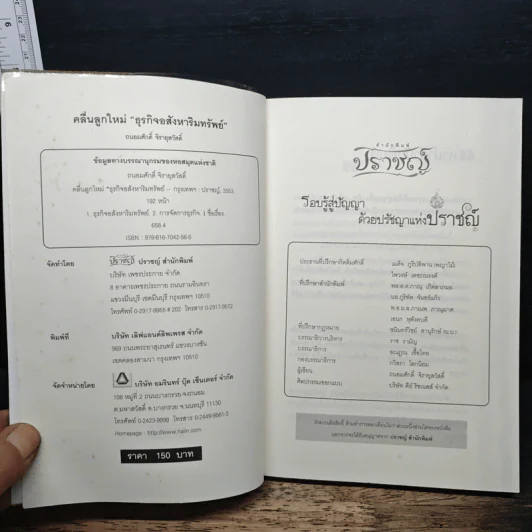 คลื่นลูกใหม่ "ธุรกิจอสังหาริมทรัพย์"
ถนอมศักดิ์ จิรายุสวัสดิ์
ข้อมูลทางบรรณานุกรมของหอสมุดแห่งชาติ
ถนอมศักดิ์ จิรายุสวัสดิ์
คลื่นลูกใหม่ "ธุรกิจอสังหาริมทรัพย์ -- กรุงเทพฯ : ปราชญ์, 2553.
192 หน้า
1. ธุรกิจอสังหาริมทรัพย์. 2. การจัดการธุรกิจ. I ชื่อเรื่อง.
658.4
ISBN : 978-616-7042-56-5
จัดทำโดย
ปราชญ์ สำนักพิมพ์
บริษัท เพชรประกาย จำกัด
8 อาคารเพชรประกาย ถนนรามอินทรา
แขวงมีนบุรี เขตมีนบุรี กรุงเทพฯ 10510
โทรศัพท์ 0-2917-8865 # 202 โทรสาร 0-2917-8872
พิมพ์ที่
บริษัท เลิฟแอนด์ลิพเพรส จำกัด
969 ถนนพระยาสุเรนทร์ แขวงบางชัน
เขตคลองสามวา กรุงเทพฯ 10510
จัดจำหน่ายโดย
บริษัท อมรินทร์ บุ๊ค เซ็นเตอร์ จำกัด
108 หมู่ที่ 2 ถนนบางกรวย-จงถนอม
ต.มหาสวัสดิ์ อ.บางกรวย จ.นนทบุรี 11130
โทรศัพท์ 0-2423-9999 โทรสาร 0-2449-9561-3
Homepage : http://www.naiin.com
ราคา 150 บาท
สำนักพิมพ์
ปราชญ์
รอบรู้สู่ปัญญา
ด้วยปรัชญาแห่ง ปราชญ์
ประธานที่ปรึกษากิตติมศักดิ์
ที่ปรึกษาสำนักพิมพ์
ที่ปรึกษากฎหมาย
บรรณาธิการบริหาร
บรรณาธิการ
กองบรรณาธิการ
ผู้เขียน
ถนอมศักดิ์ จิรายุสวัสดิ์
ศิลปกรรมออกแบบ